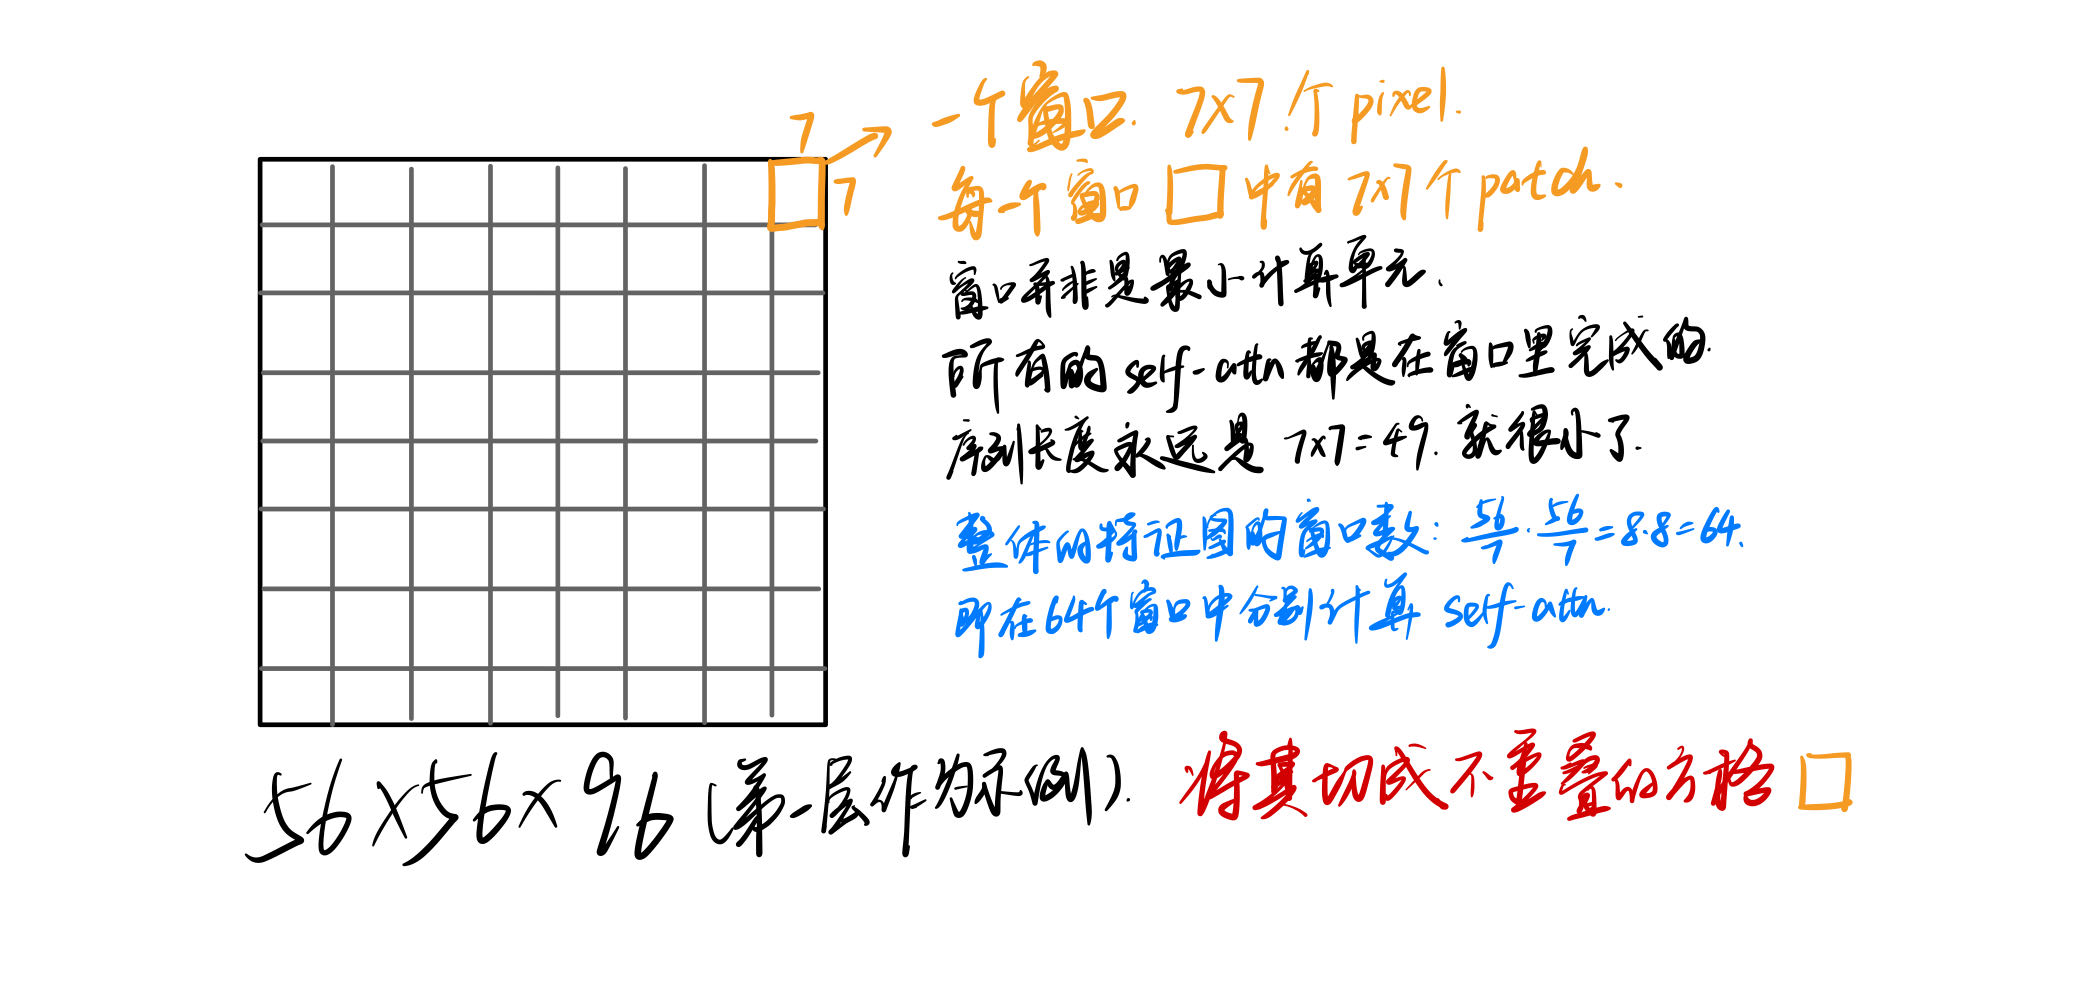 7
7
一个窗口. 7x7个pixel.
每一个窗口 中有 7x7个patch.
窗口并非是最小计算单元.
所有的 self-attn 都是在窗口里完成的.
序列长度永远是 7x7=49. 就很小了.
整体的特征图的窗口数: 56/7 · 56/7 = 8·8 = 64.
即在64个窗口中分别计算 self-attn.
56x56x96 (第一层作为示例).
将其切成不重叠的方格